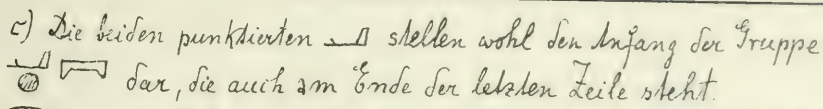 c) Die beiden punktierten 𓂝 stellen wohl den Anfang der Gruppe
𓂝𓐍 𓈅 dar, die auch am Ende der letzten Zeile steht.